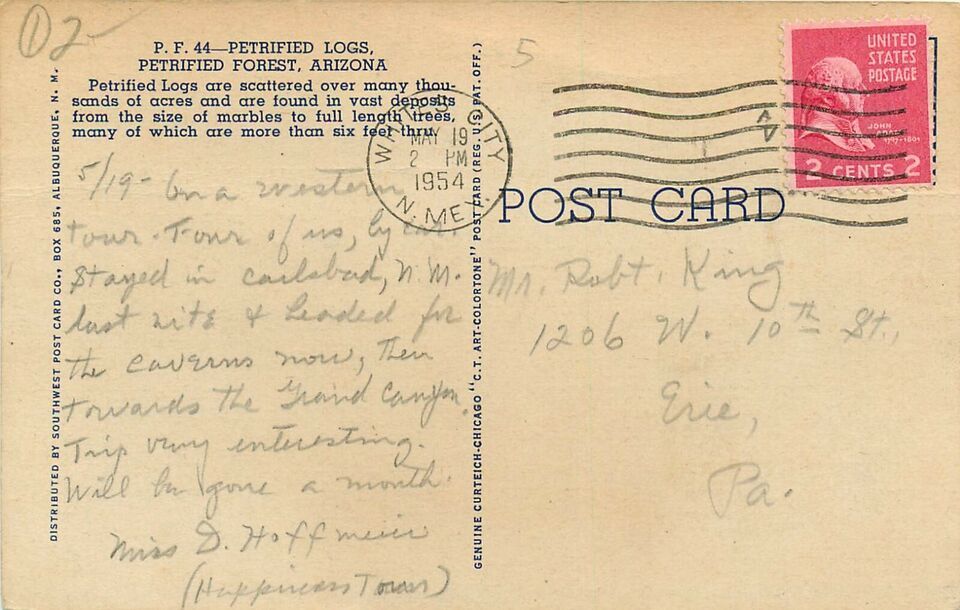 D2-
P. F. 44—PETRIFIED LOGS,
PETRIFIED FOREST, ARIZONA
Petrified Logs are scattered over many thou-
sands of acres and are found in vast deposits
from the size of marbles to full length trees,
many of which are more than six feet thru.
5/19- On a western
tour. Four of us, by car.
Stayed in Carlsbad, N.M.
last nite & headed for
the caverns now, then
towards the Grand Canyon.
Trip very interesting.
Will be gone a month.
Miss D. Hoffmeier
(Happiness Tour)
DISTRIBUTED BY SOUTHWEST POST CARD CO., BOX 685, ALBUQUERQUE, N. M.
GENUINE CURTEICH-CHICAGO "C.T. ART-COLORTONE" POST CARD (REG. U.S. PAT. OFF.)
5
WHITE'S CITY
MAY 19
2 PM
1954
N. MEX.
UNITED
STATES
POSTAGE
JOHN
ADAMS
1797-1801
2 CENTS 2
POST CARD
Mr. Robt. King
1206 W. 10th St.,
Erie,
Pa.